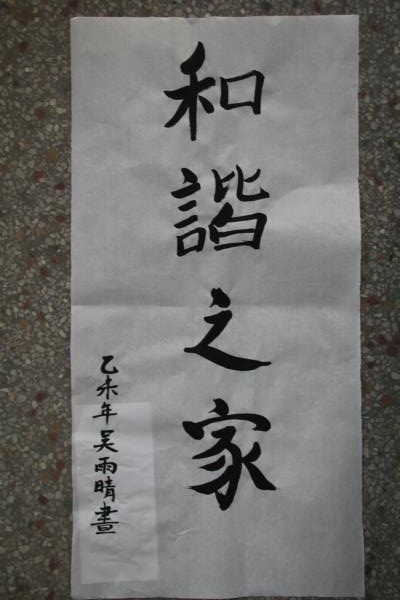 和諧之家
乙未年吴雨晴畫